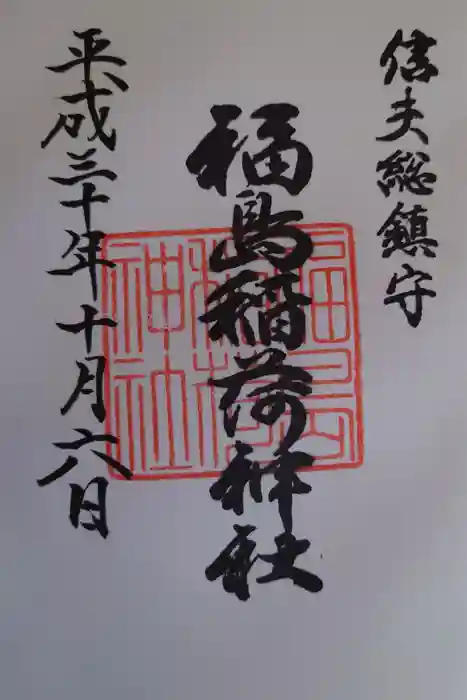 信夫総鎮守
福島稲荷神社
平成三十年十月六日
福島
稲荷
神社